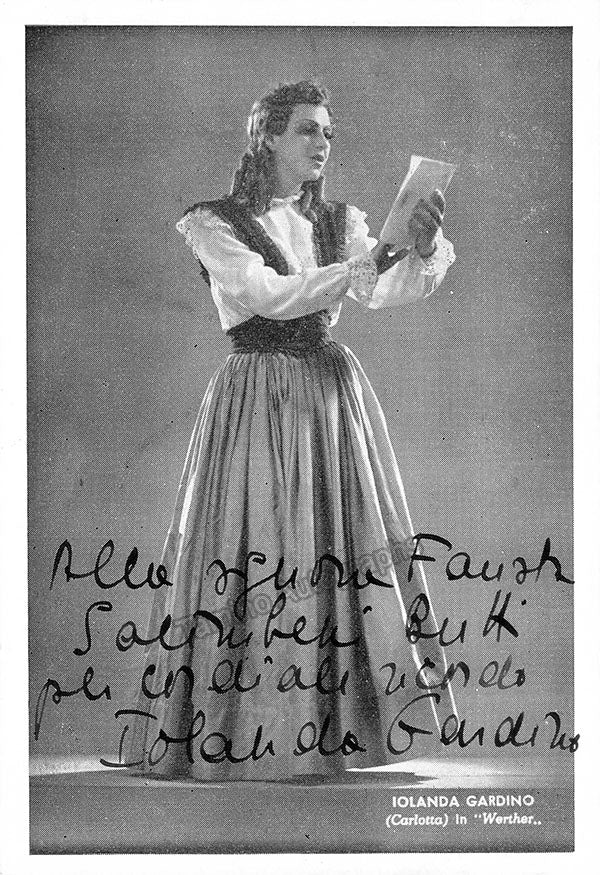 Alla signora Fausta
Salimbeni Butti
per cordiale ricordo
Iolanda Gardino
IOLANDA GARDINO
(Carlotta) in "Werther„
Tamino Autographs